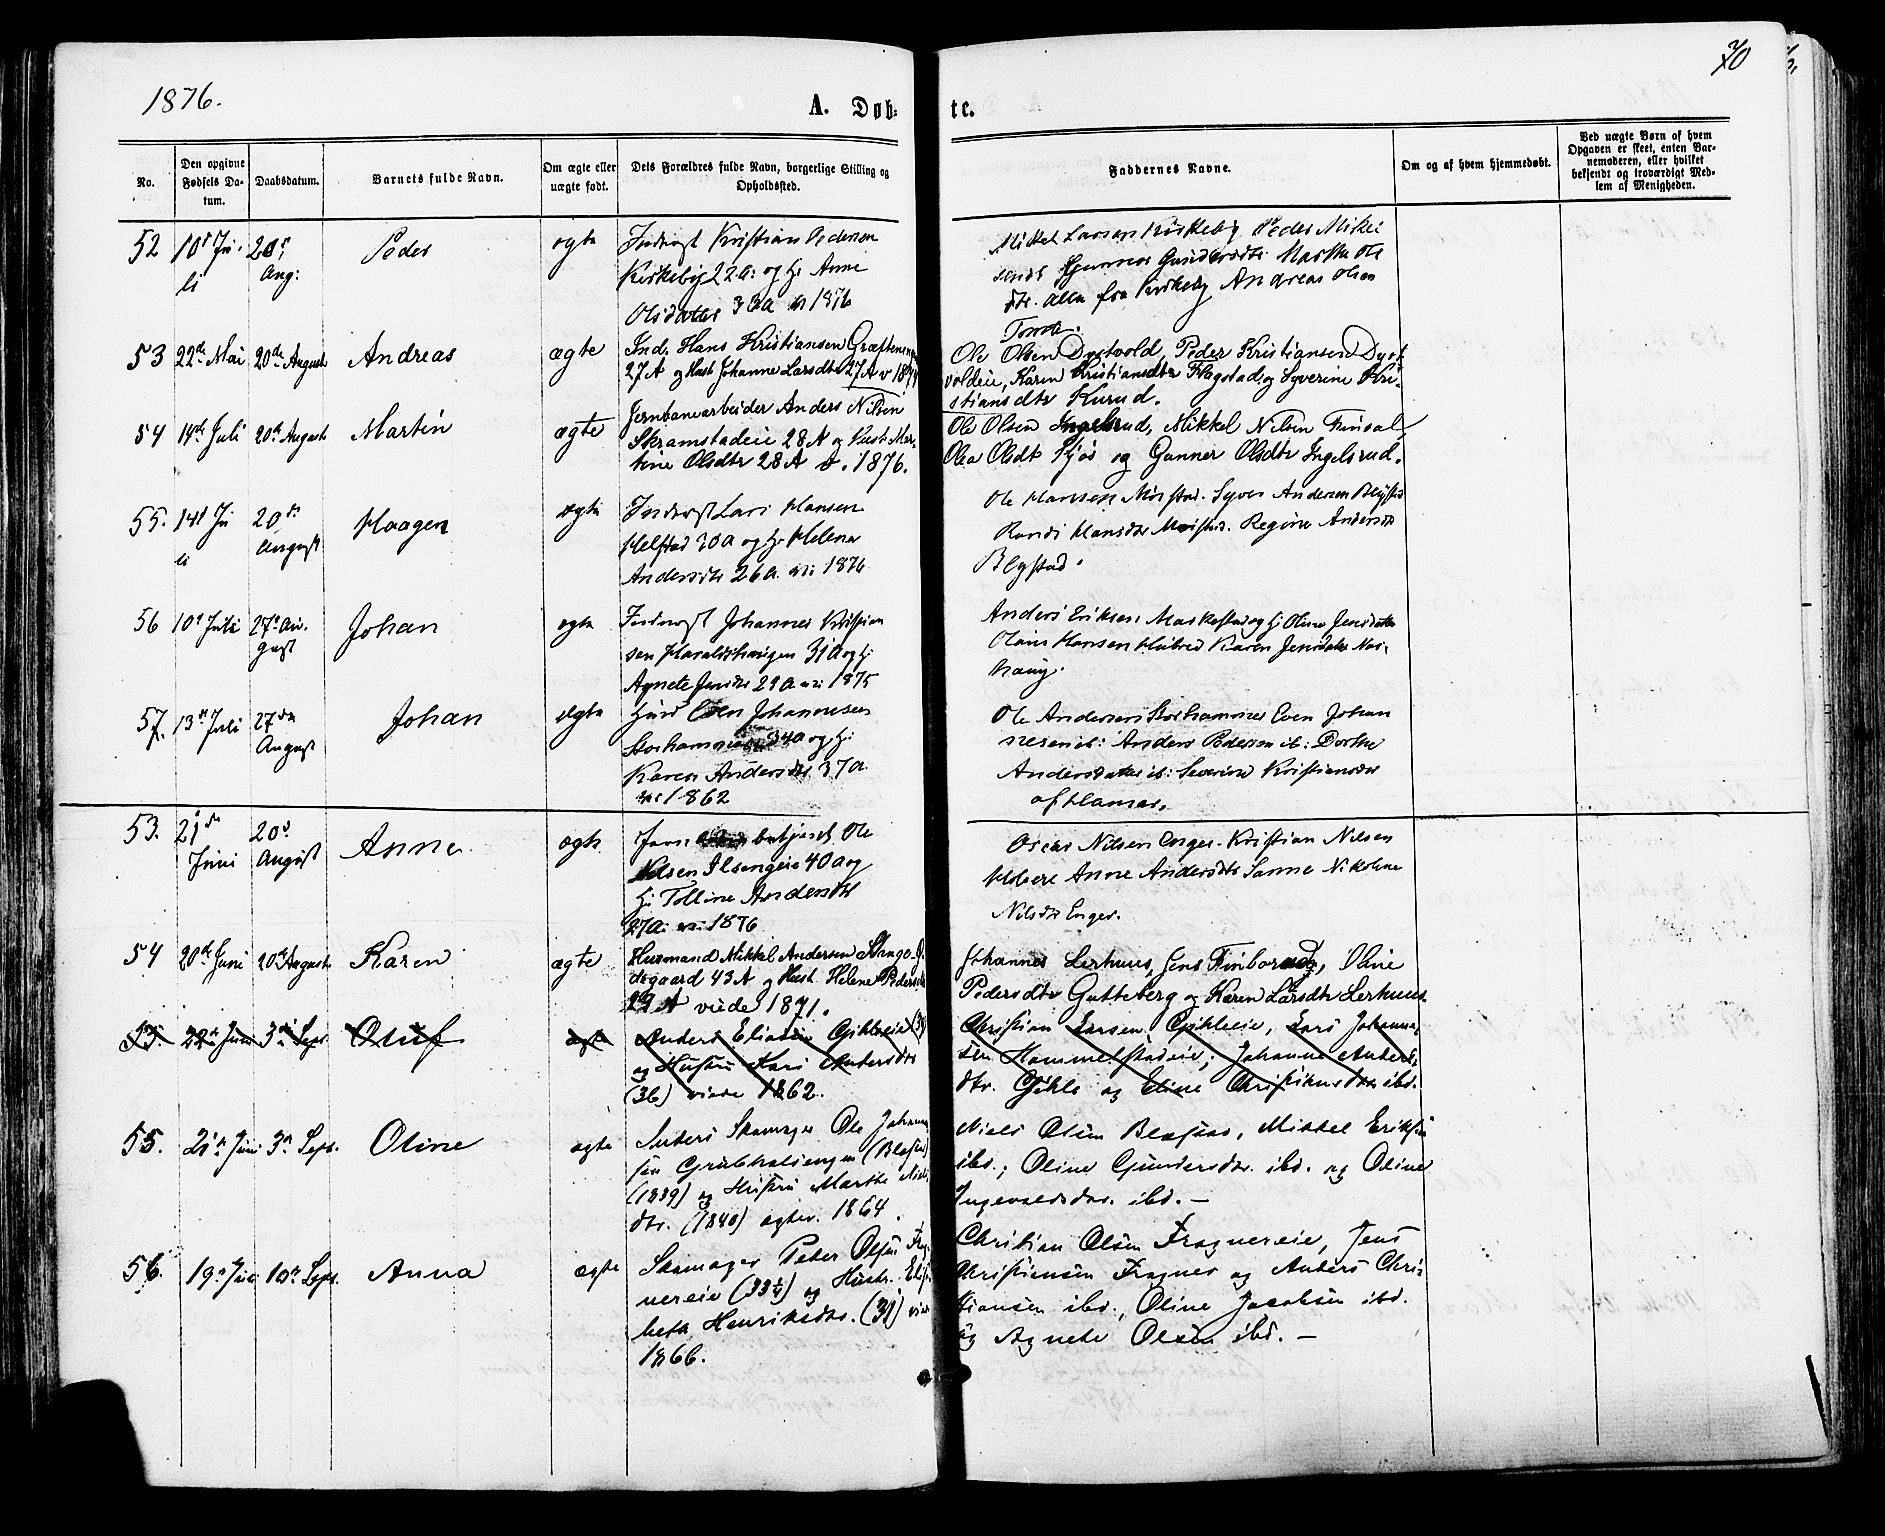 1876.
A. Døb= te.
70
No.
Den opgivne Fødsels Da- tum.
Daabsdatum.
Barnets fulde Navn.
Om ægte eller uægte født.
Dets Forældres fulde Navn, borgerlige Stilling og Opholdssted.
Faddernes Navne.
Om og af hvem hjemmedøbt.
Ved uægte Børn af hvem Opgaven er skeet, enten Bar- nemoderen, eller hvilket bekjendt og troværdigt Med- lem af Menigheden.
52 10 Ju- 20 Peder ægte Kristian Pedersen
li Aug: Kirkeby 22 a: og h: Anne
Olsdatter 33 a 1876
Mikkel Larsen Kirkeby Peder Mikel
sen Gunnor Gundersdtr Marthe Ols
dtr. alle fra Kirkeby Andreas Olsen
Tomte.
53 22de Mai 20de August Andreas ægte Ind. Hans Kristiansen
27 A og Hust Johanne Larsdtr 27 A v 187
Ole Olsen Dystvold, Peder Kristiansen Dyst
voldeie, Karen Kristiansdtr Flagstad og Syverine Kri-
stiansdtr Kurud.
54 14de Juli 20de August Martin ægte Jernbanearbeider Anders Nilsen
Skramstadeie 28 A og Hust Mar-
tine Olsdtr 28 A v. 1876.
Ole Olsen Ingelsrud, Mikkel Nilsen Finsal,
Olea Olsdt Kjos og Gunner Olsdtr Ingelsrud.
55. 14 Ju 20de Haagen ægte Lars Hansen
li August Helstad 30 a og h: Helene
Andersdtr 26 a. v: 1876
Ole Hansen Morstad. Syver Andersen Blystad
Randi Hansdtr Morstad. Regine Andersdtr
Blystad.
56 10 Juli 27 Au- Johan ægte Johannes Kristian
gust sen Haraldshaugen 31 a og h:
Agnete Jensdtr 29 a v: 1875
Anders Eriksen Maskestad og h: Oline Jensdatter
Hansen Karen Jensdatter Nor-
haug.
57. 13de Juli 27de Johan ægte Even Johannesen
August Storhammer 34 a og h:
Karen Andersdtr 37 a.
v: 1862
Ole Andersen Storhammer Even Johan
nesen ib: Anders Pedersen ib: Dorthe
Andersdatter ib: Severine Kristiansdtr
af Hamar.
53. 21de 20de Anne ægte betjent Ole
Juni August Nilsen Ilsengeie 40 a og
h: Tolline Andersdtr
27 a. v: 1876
Oscar Nilsen Enger. Kristian Nilsen
Anne Andersdtr Sanne Nikoline
Nilsdtr Enger.
54 20de Juni 20de August Karen ægte Husmand Mikkel Andersen Stange
43 A og Hust Helene Pedersdtr
29 A viede 1871.
Johannes Lerhuus, Jens Finborud, Oline
Pedersdtr Gutteberg og Karen Larsdtr Lerhuus.
55. 22de Juni 3de Sept. Oluf ægte Anders Eliasen Gjikleeie (39)
og Hustru Kari Andersdtr
(36) viede 1862.
Christian Larsen Gjikleeie, Lars Johanne-
sen Hommelstadeie, Johanne Anders-
dtr. Gjikle og Eline Christiansdtr ibd.
55. 21de Juni 3de Sept. Oline ægte Skomager Ole Johanne
sen
(1839) og Hustru Marthe Niels
dtr. (1840) ægtev. 1864.
Niels Olsen Blæstad, Mikkel Eriksen
ibd., Oline Gundersdtr. ibd. og Oline
Ingevaldsdtr. ibd. —
56. 19de 10de Sept. Anna ægte Skomager Peter Olsen Frog-
nereie (33½) og Hustr. Elisa
beth Henriksdtr. (31) viede
1866.
Christian Olsen Frognereie, Jens
Christiansen Frogner og Anders Chri-
stiansen ibd., Oline Jacobsen ibd.
og Agnete Olsen ibd. —